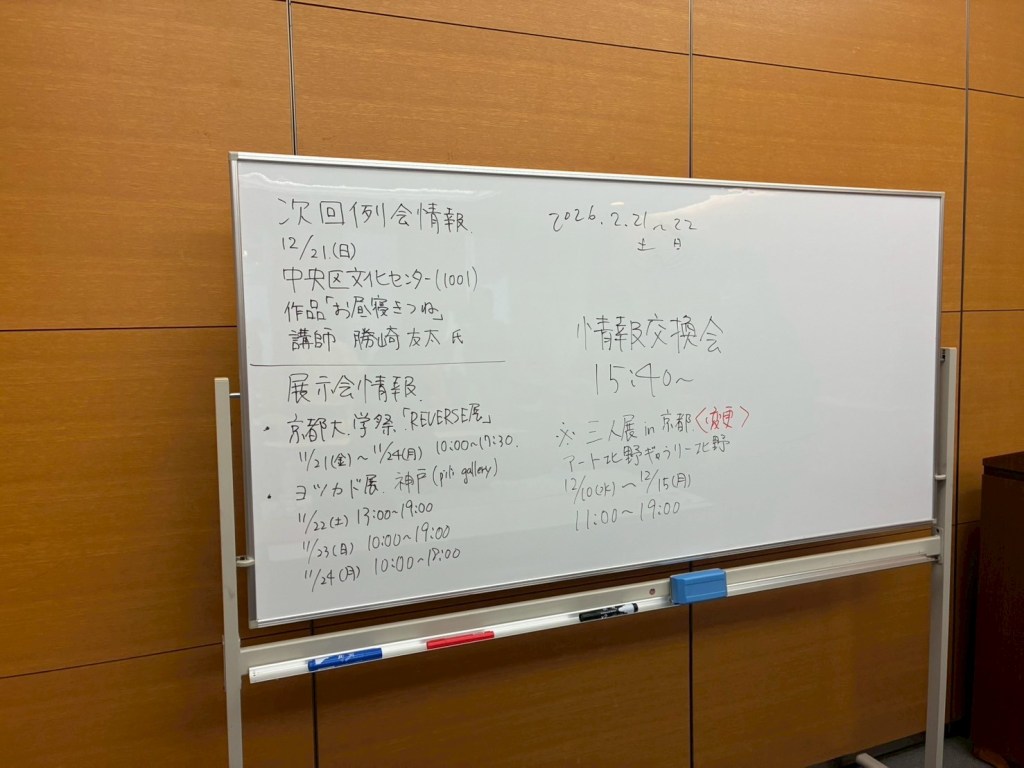 次回例会情報.
12/21.(日)
中央区文化センター(1001)
作品「お昼寝きつね」
講師 勝崎友太氏
展示会情報.
・京都大学祭「REVERSE展」
11/21(金)～11/24(月) 10:00～17:30.
・ヨツカド展. 神戸(pili gallery)
11/22(土) 13:00～19:00
11/23(日) 10:00～19:00
11/24(月) 10:00～18:00
2026.2.21～22
土 日
情報交換会
15:40～
※ 三人展 in 京都〈変更〉
アート北野ギャラリー北野
12/10(水)～12/15(月)
11:00～19:00